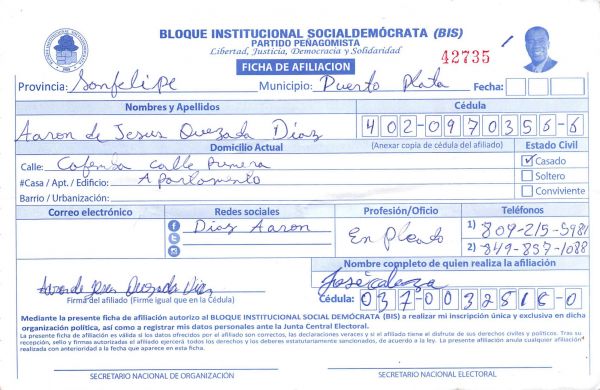 BLOQUE INSTITUCIONAL SOCIALDEMÓCRATA (BIS)
PARTIDO PEÑAGOMISTA
Libertad, Justicia, Democracia y Solidaridad
42735
FICHA DE AFILIACION
Provincia: Sonfelipe Municipio: Puerto Plata Fecha:
Nombres y Apellidos Cédula
Aaron de Jesus Quezada Diaz 402-0970356-6
Domicilio Actual (Anexar copia de cédula del afiliado) Estado Civil
Calle: calle Primera Casado
#Casa / Apt. / Edificio: Apartamento Soltero
Barrio / Urbanización: Conviviente
Correo electrónico Redes sociales Profesión/Oficio Teléfonos
Diaz Aaron En Pleado 1) 809-215-5981
2) 849-857-1088
Nombre completo de quien realiza la afiliación
Aaron de Jesus Quezada Diaz José
Firma del afiliado (Firme igual que en la Cédula) Cédula: 037-0032518-0
Mediante la presente ficha de afiliación autorizo al BLOQUE INSTITUCIONAL SOCIAL DEMÓCRATA (BIS) a realizar mi inscripción única y exclusiva en dicha
organización política, así como a registrar mis datos personales ante la Junta Central Electoral.
La presente ficha de afiliación es válida si los datos ofrecidos por el afiliado son correctos, las declaraciones veraces y si el afiliado tiene el disfrute de sus derechos civiles y políticos. Tras su
recepción, sello y firmas autorizadas el afiliado ejercerá todos los derechos y los deberes estatutariamente sancionados, de acuerdo a la ley. La presente afiliación anula cualquier afiliación
realizada con anterioridad a la fecha que aparece en esta ficha.
SECRETARIO NACIONAL DE ORGANIZACIÓN SECRETARIO NACIONAL ELECTORAL